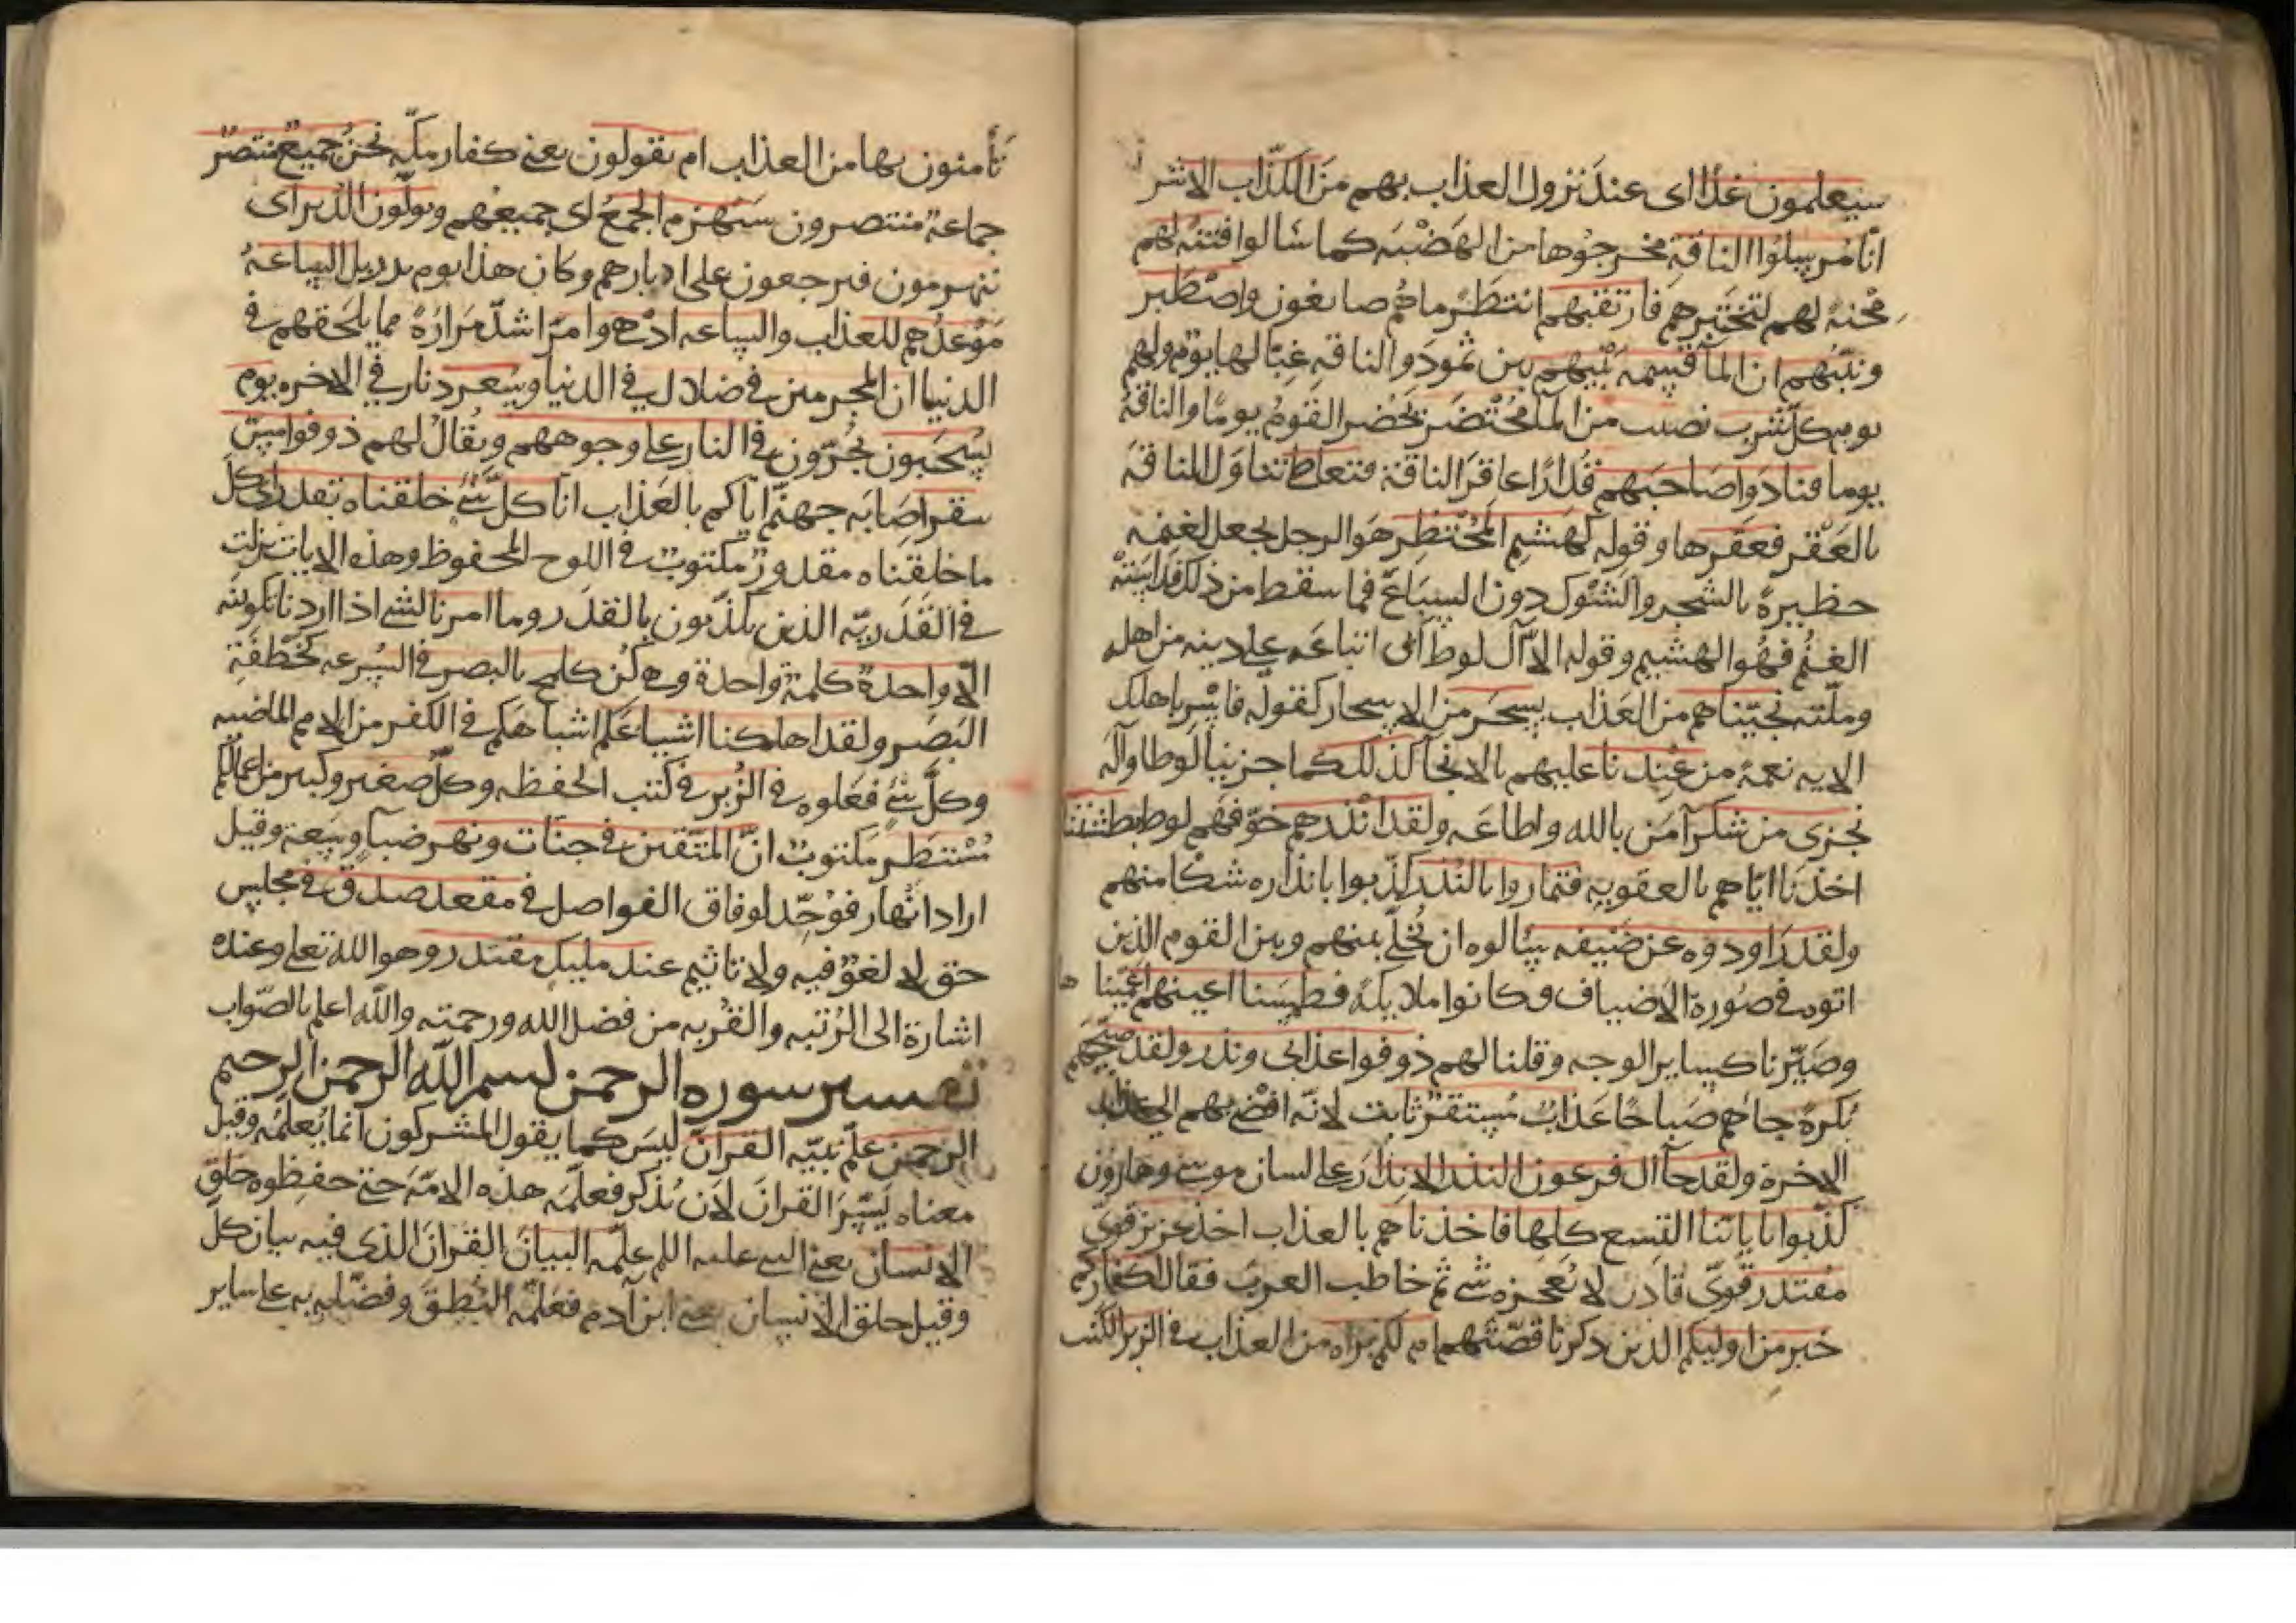 سيعلمون غدًا اى عند نزول العذاب بهم مَن الكذّاب الاشر
انّا مُرسِلُوا الناقةِ مخرجُوها من الهَضْبَه كما سَالوا فتنةً لهم
مِحْنَةً لهم لنَختَبِرهم فارتقبهم انتَظِرْ ما هُم صانعُون واصْطَبِر
ونَبّئهم ان المآ قِسمةٌ بَيْنهم بين ثمودَ والناقه غِبًّا لها يومٌ ولهم
يوم كلّ شِربٍ نصيب من المآ مُحْتَضَرٌ يَحْضر القَومُ يومًا والناقةُ
يوما فنادَوا صَاحبَهم قُدارًا عاقرَ الناقة فتعاطى تناوَل الناقةَ
بالعَقْر فعَقَرها وقوله كهَشيم المُحْتَظِر هَو الرجل يجعل لغنمه
حظيرةً بالشجر والشَّوك دون السِّباعَ فما سقط من ذلك فدَاسَتْهُ
الغنَمُ فهُو الهشيم وقوله الاّ آل لوطٍ اى اتباعَه على دينه من اهله
وملّته نجّيناهم من العَذاب بسَحَر من الاسحار كقوله فاسْرِ باهلك
الايه نعمةً من عِنْدنا عليهم بالانجآ كذلك كما جزينا لوطا وآلَه
نجزى من شكر آمَن بالله واطاعَه ولقد انْذرهم خوّفهم لوط بَطْشَتَنا
اخْذَنا ايّاهم بالعقوبه فتماروا بالنُّذر كذّبوا بانذاره شكًا منهم
ولقد رَاودوه عن ضَيفه سَالوه ان يُخلّي بينهم وبين القوم الذين
اتوه في صُورة الاضياف وكانوا ملايكةً فطمسنا اعينهم اَعْمَينا ها
وصَيّرنا كساير الوجه وقلنا لهم ذوقوا عذابى ونذر ولقد صبّحهم
بُكرةً جاءهم صَباحًا عَذابٌ مُستقرٌّ ثابت لانّه افضى بهم الى عذاب
الاخرة ولقد جآ ال فرعون النذر الانذارَ على لسان موسى وهارون
كذّبوا باياتنا التِسع كلها فاخذناهم بالعذاب اخذ عزيز قوىّ
مقتدر قوىّ قادرٍ لا يُعجزه شى ثم خاطب العربَ فقال اكفاركم
خير من اوليكم الذين ذكرنا قصّتهم ام لكم براه من العذاب فى الزبر الكتب
تَأمنون بها من العذاب ام يقولون يعنى كفار مكّه نحنُ جميعٌ منتصرٌ
جماعةٌ منتصرون سَيُهْزم الجمعُ اى جميعُهم ويولّون الدُّبر اى
ينهزمون فيرجعون على ادبارهم وكان هذا يوم بدر بل السّاعةُ
مَوْعدُهم للعذاب والساعه ادْهى وامرّ اشدّ مَرَارَةً مما يلحقهم فى
الدنيا ان المجرمين فى ضلال فى الدنيا وسُعر د نار فى الاخره يوم
يُسْحَبون يُجَرّون فى النار على وجوههم ويُقالُ لهم ذوقوا مسّ
سقر اصَابَه جهنّم اياكم بالعَذاب انّا كلّ شَىٍ خلقناه بقدر اى كلّ
ما خلقناه مقدورٌ مكتوبٌ فى اللوح المحفوظ وهذه الايات نزلت
فى القَدَريّه الذين يكذّبون بالقدَر وما امرنا لشى اذا اردنا تكوينَه
الّا واحدةٌ كلمةٌ واحدة وهى كُن كلمح بالبصر فى السُرعه كخَطْفَةِ
البَصَر ولقد اهلكنا اشياعَكم اشباهَكم فى الكفر من الامم الماضيه
وكلّ شَىٍ فَعَلوه فى الزُبر فى كتب الحفظه وكلّ صغير وكبير من اعمالكم
مُسْتَطَر مكتوبٌ انّ المتّقين فى جنّات ونهر ضيآ وسَعة وقيل
اراد انْهار فوُحّد لوفاق الفواصل فى مقعد صدق فى مجلس
حق لا لغوٌ فيه ولا تاثيم عند مليك مقتدر وهو الله تعلى وعنده
اشارة الى الرُتبه والقُربه من فضل الله ورحمته والله اعلم بالصّواب
تفسير سوره الرحمن بسم الله الرحمن الرحيم
الرحمن علّم نبيّه القرآن ليسَ كما يقول المشركون انما يُعلّمُه وقيل
معناه يَسَّرَ القرانَ لاَن يُذكر فعلّمَه هذه الامّةَ حتى حفظوه خلق
الانسان يعنى النبى عليه السلم علّمه البيانَ القرانَ الذى فيه بيان كلّ
وقيل خلق الانسان يعنى ابن آدم فعَلّمه النُطقَ وفضّله به على ساير